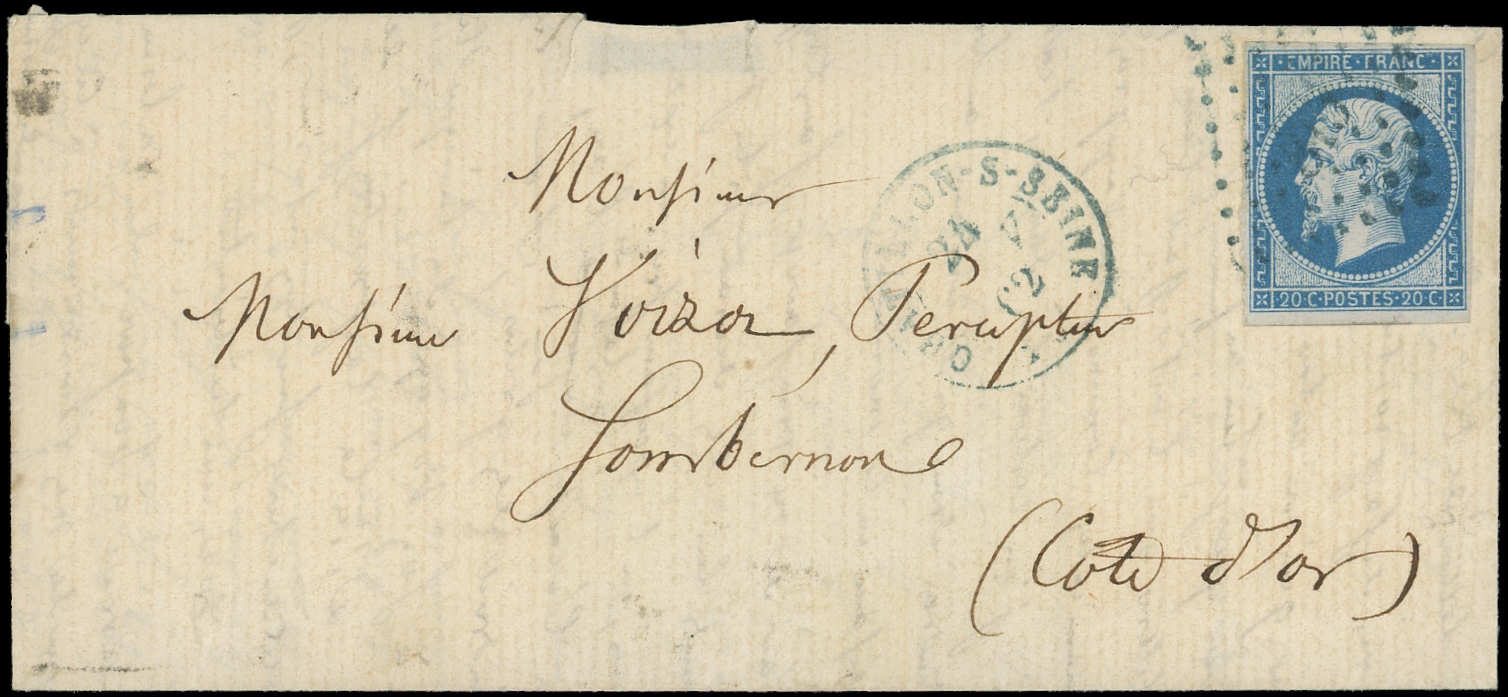 Monsieur
Monsieur Voizot, Percepteur
Sombernon
(Cote d'or)
EMPIRE · FRANC ·
20 C · POSTES · 20 C ·
LLON-S-SEINE
24